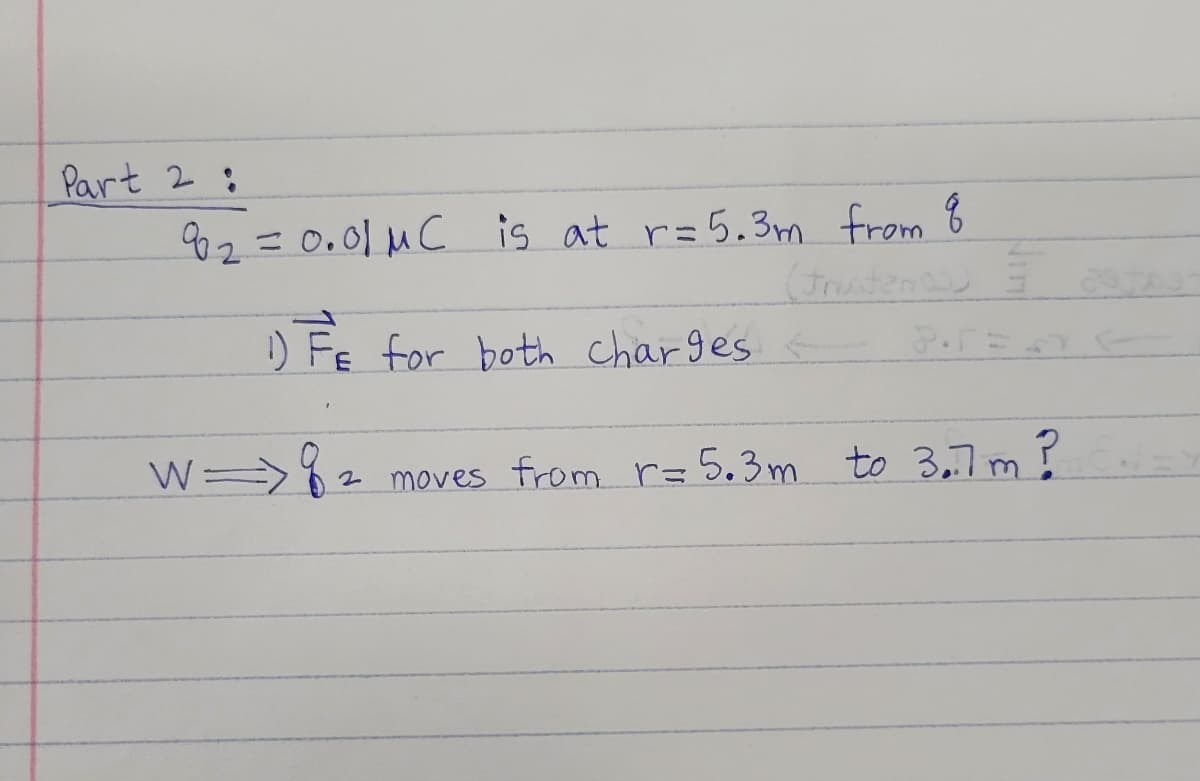 Part 2 :
q₂ = 0.01 μC is at r = 5.3m from q
1) F⃗E for both charges
W ⟹ q₂ moves from r = 5.3m to 3.7m ?